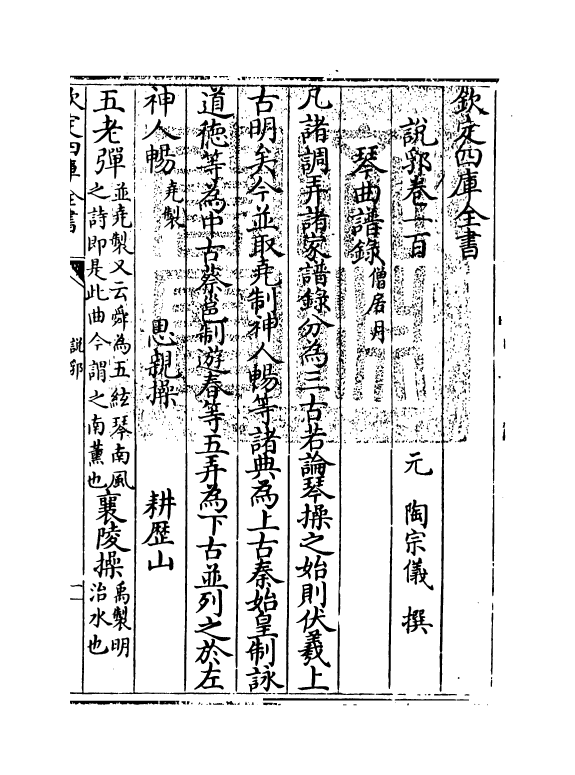 欽定四庫全書
說郛卷一百
元 陶宗儀 撰
琴曲譜錄 僧居月
凡諸調弄諸家譜錄分為三古若論琴操之始則伏羲上
古明矣今並取堯制神人暢等諸典為上古秦始皇制詠
道德等為中古蔡邕制遊春等五弄為下古並列之於左
神人暢 堯製 思親操 耕歷山
五老彈 並堯製又云舜為五絃琴南風之詩即是此曲今謂之南薰也 襄陵操 禹製明治水也
欽定四庫全書 說郛 一